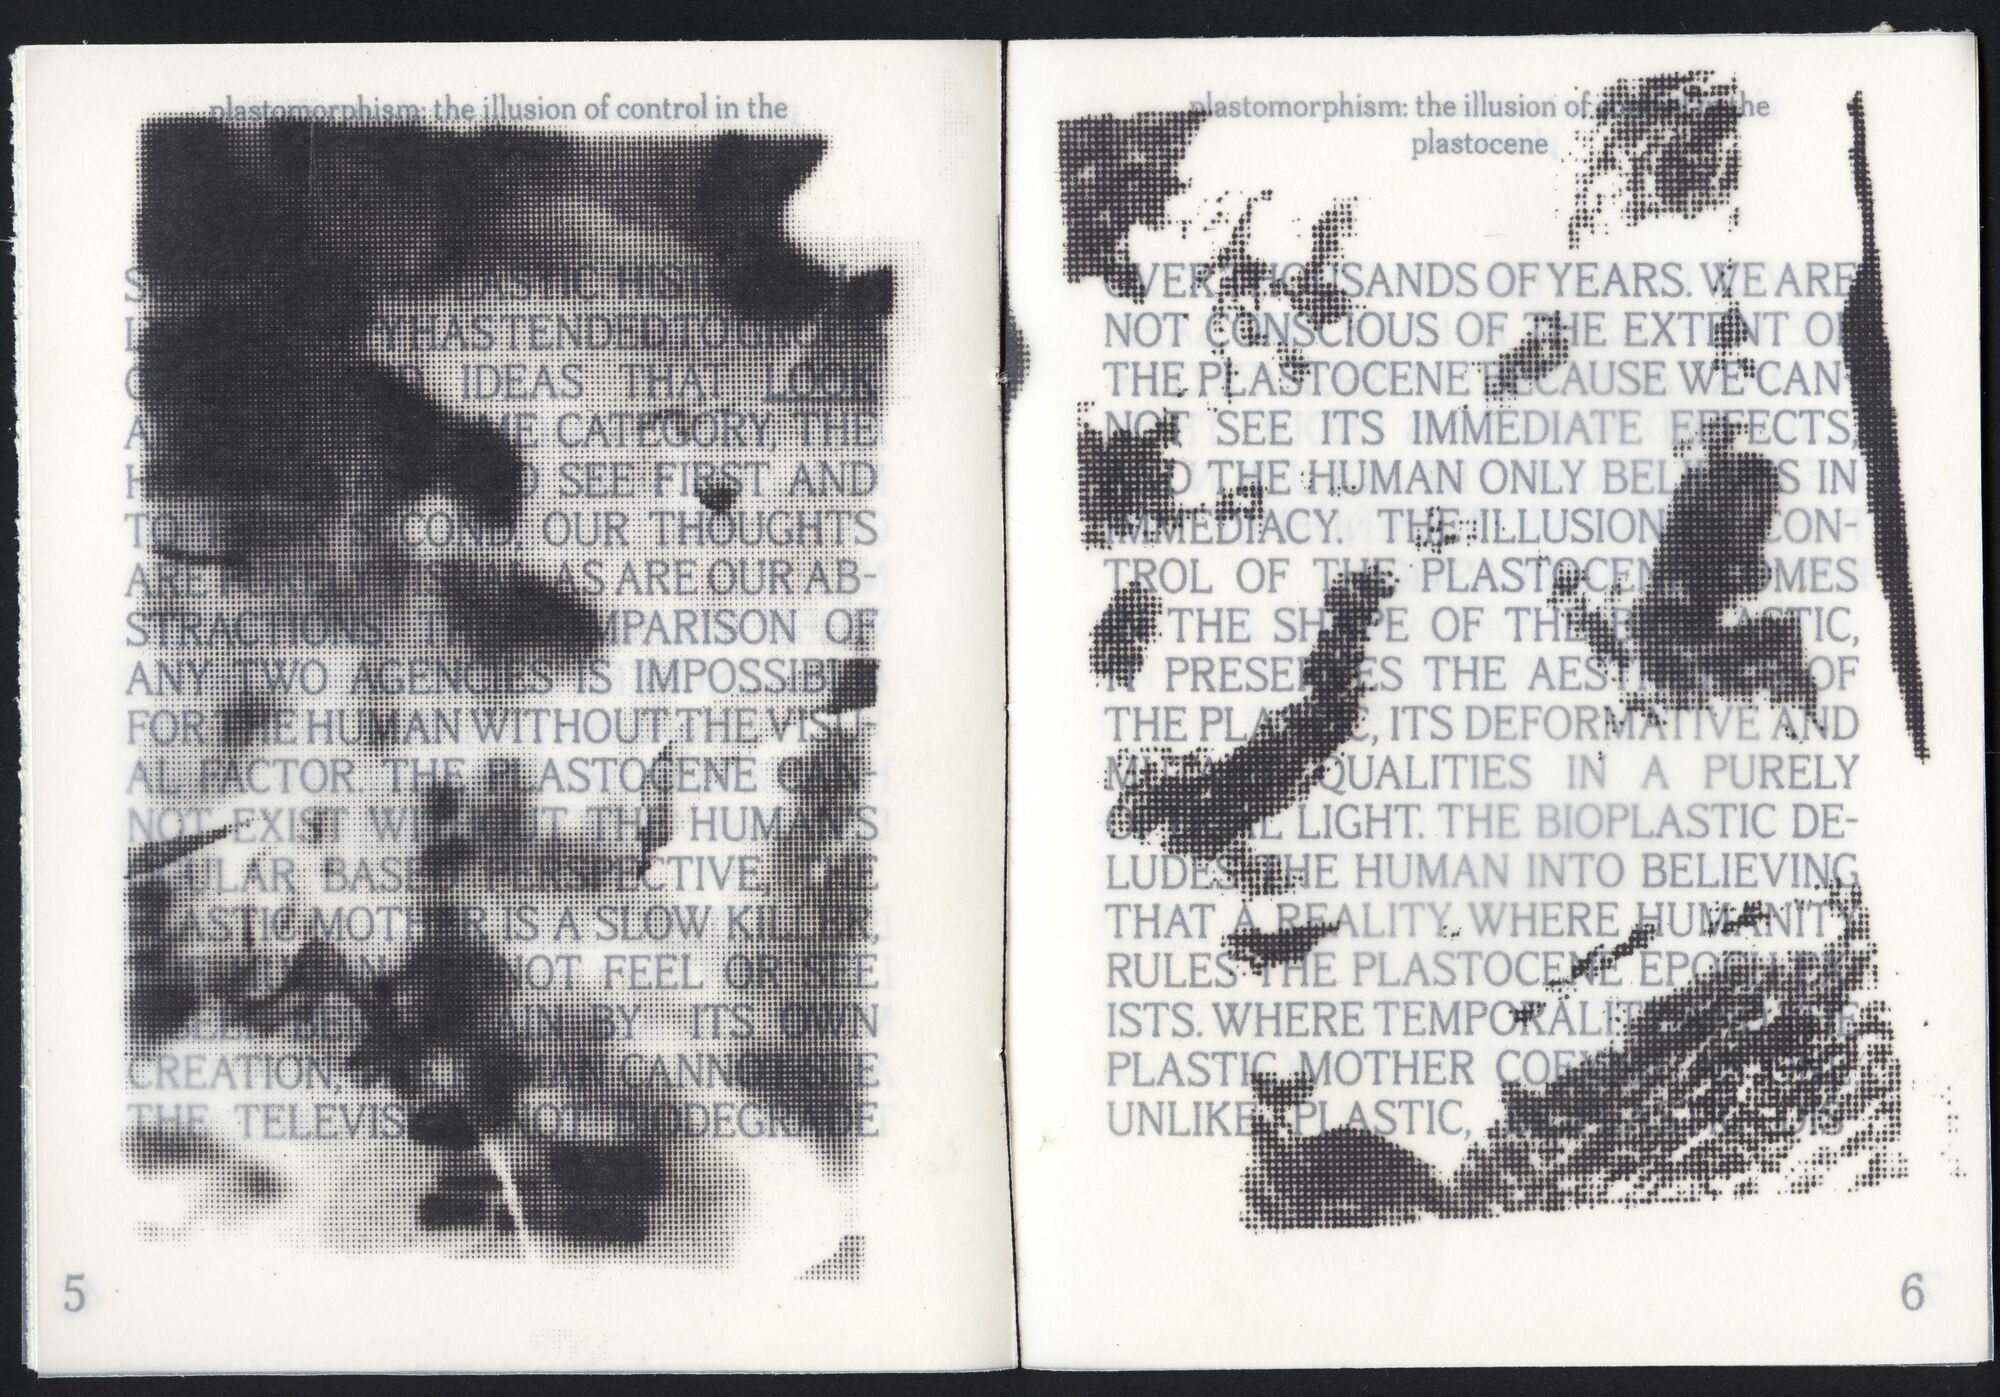 plastomorphism: the illusion of control in the
HIST
YHAS TENDED TO
IDEAS THAT LOOK
CATEGORY, THE
SEE FIRST AND
TO SECOND, OUR THOUGHTS
ARE AS ARE OUR AB-
STRACTIONS. COMPARISON OF
ANY TWO AGENCIES IS IMPOSSIBLE
FOR THE HUMAN WITHOUT THE VISU-
AL FACTOR. THE PLASTOCENE CAN-
NOT EXIST WITHOUT THE HUMAN'S
OCULAR BASED PERSPECTIVE, THE
PLASTIC MOTHER IS A SLOW KILLER,
NOT FEEL OR SEE
BY ITS OWN
CREATION, CANNOT
THE BIODEGRADE
5
plastomorphism: the illusion of control in the
plastocene
OVER THOUSANDS OF YEARS. WE ARE
NOT CONSCIOUS OF THE EXTENT OF
THE PLASTOCENE BECAUSE WE CAN-
NOT SEE ITS IMMEDIATE EFFECTS,
AND THE HUMAN ONLY BELIEVES IN
IMMEDIACY. THE ILLUSION CON-
TROL OF THE PLASTOCENE COMES
THE SHAPE OF THE BIOPLASTIC,
IT PRESERVES THE AESTHETICS OF
THE PLASTIC, ITS DEFORMATIVE AND
QUALITIES IN A PURELY
LIGHT. THE BIOPLASTIC DE-
LUDES THE HUMAN INTO BELIEVING
THAT A REALITY WHERE HUMANITY
RULES THE PLASTOCENE EPOCH EX-
ISTS. WHERE TEMPORALITY
PLASTIC MOTHER
UNLIKE PLASTIC,
6